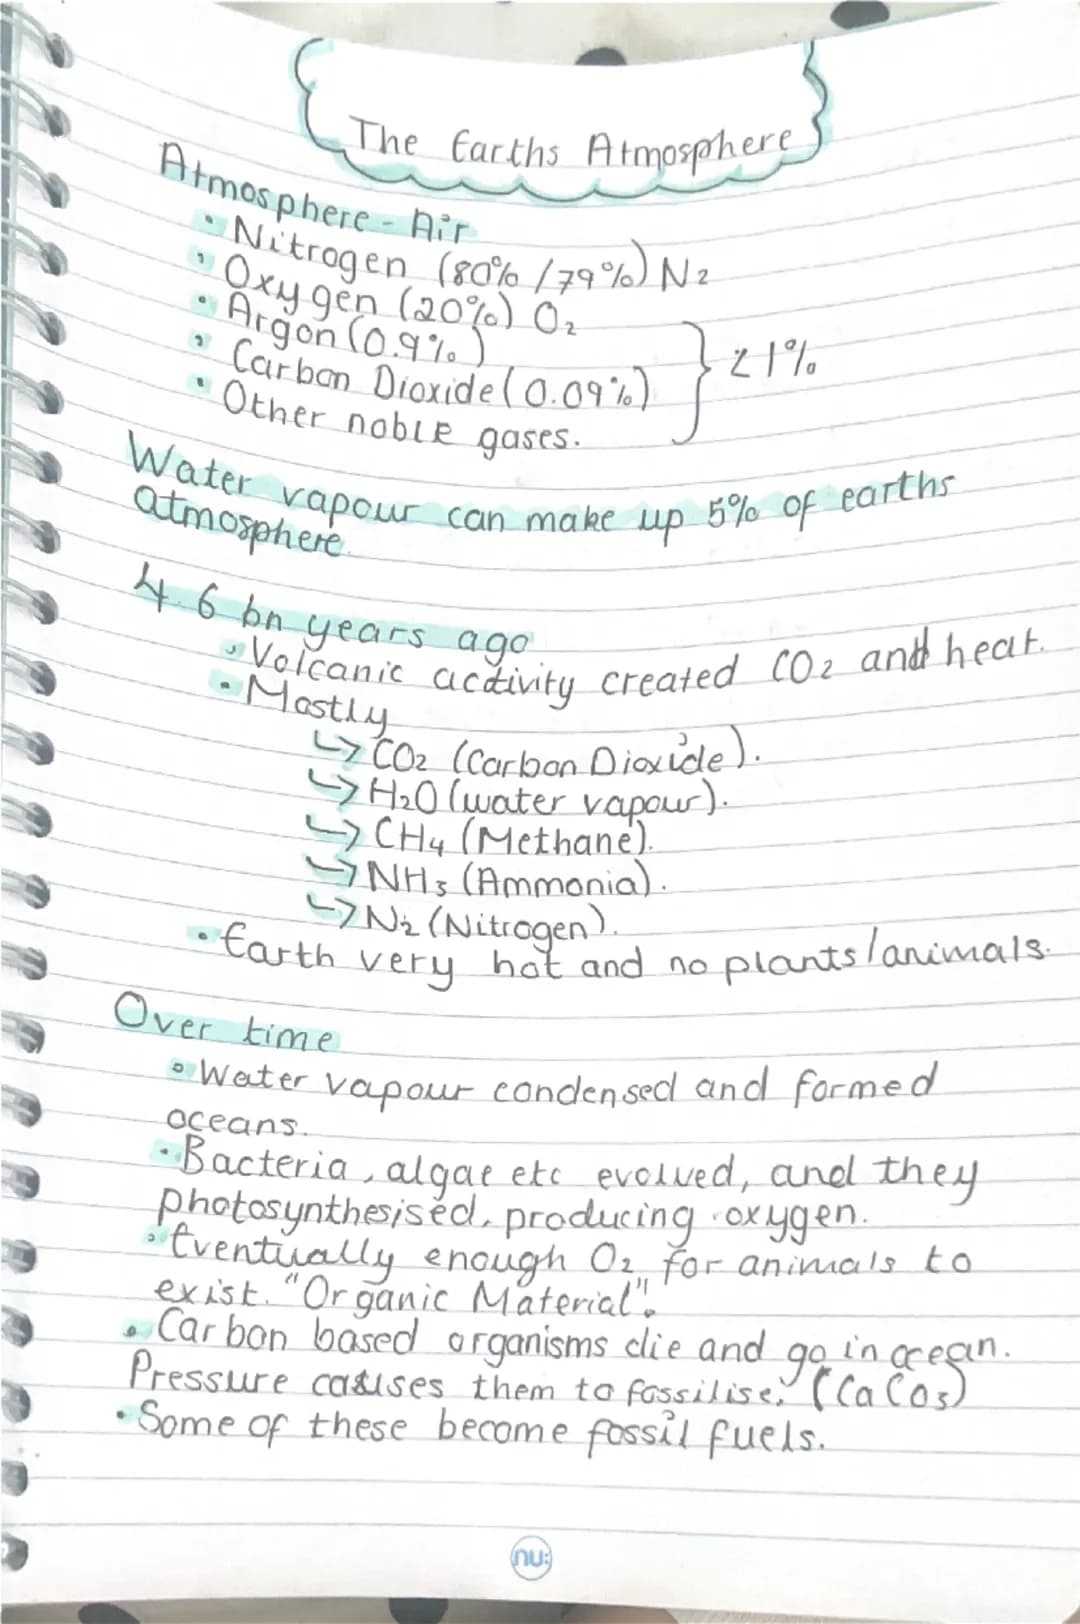 The Earths Atmosphere
Atmosphere - Air
• Nitrogen (80% / 79%) N2
• Oxygen (20%) O2
• Argon (0.9%)
• Carbon Dioxide (0.09%)
• Other noble gases.
} <1%
Water vapour can make up 5% of earths
atmosphere
4.6 bn years ago
• Volcanic activity created CO2 and heat.
• Mostly
↳ CO2 (Carbon Dioxide).
↳ H2O (water vapour).
↳ CH4 (Methane).
↳ NH3 (Ammonia).
↳ N2 (Nitrogen).
• Earth very hot and no plants/animals.
Over time
• Water vapour condensed and formed
oceans.
• Bacteria, algae etc evolved, and they
photosynthesised, producing oxygen.
• Eventually enough O2 for animals to
exist. "Organic Material".
• Carbon based organisms die and go in ocean.
Pressure causes them to fossilise. (CaCO3)
• Some of these become fossil fuels.
nu: